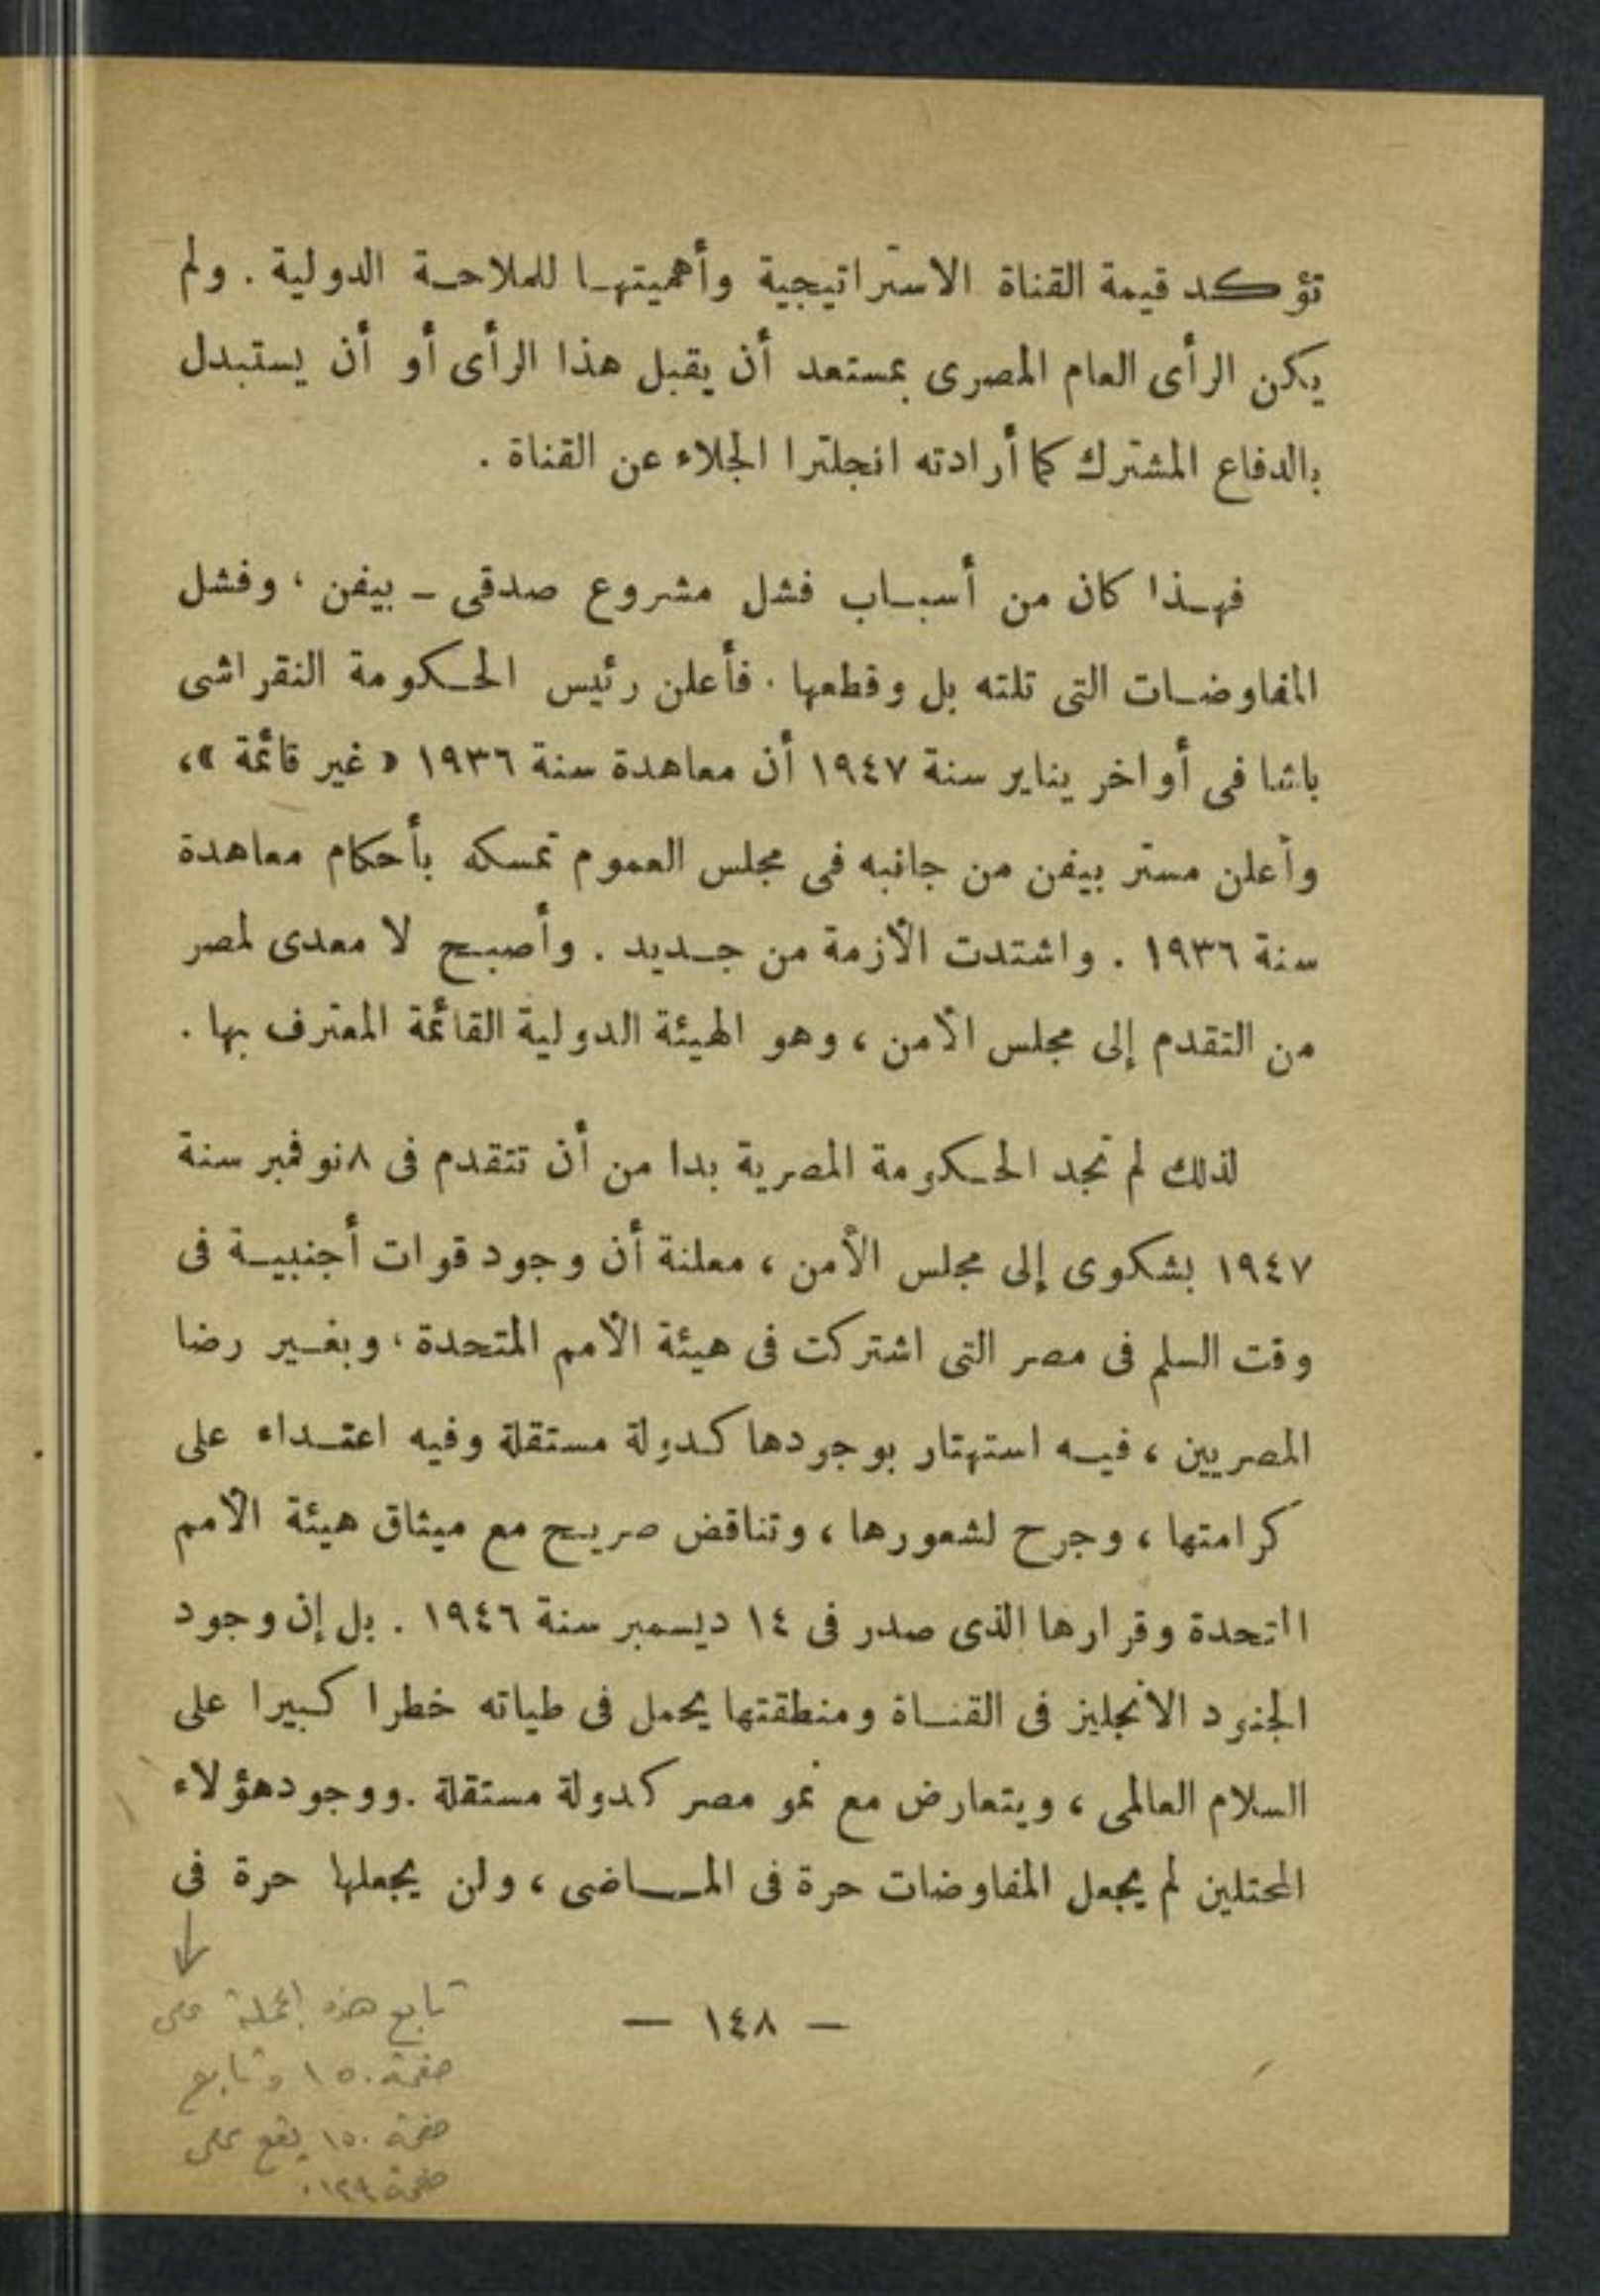 تؤكد قيمة القناة الاستراتيجية وأهميتها للملاحة الدولية . ولم
يكن الرأى العام المصرى بمستعد أن يقبل هذا الرأى أو أن يستبدل
بالدفاع المشترك كما أرادته انجلترا الجلاء عن القناة .
فهذا كان من أسباب فشل مشروع صدقى – بيفن ، وفشل
المفاوضات التى تلته بل وقطعها . فأعلن رئيس الحكومة النقراشى
باشا فى أواخر يناير سنة ١٩٤٧ أن معاهدة سنة ١٩٣٦ « غير قائمة »،
وأعلن مستر بيفن من جانبه فى مجلس العموم تمسكه بأحكام معاهدة
سنة ١٩٣٦ . واشتدت الأزمة من جديد . وأصبح لا معدى لمصر
من التقدم إلى مجلس الأمن ، وهو الهيئة الدولية القائمة المعترف بها .
لذلك لم تجد الحكومة المصرية بدا من أن تتقدم فى ٨ نوفمبر سنة
١٩٤٧ بشكوى إلى مجلس الأمن ، معلنة أن وجود قوات أجنبية فى
وقت السلم فى مصر التى اشتركت فى هيئة الأمم المتحدة ، وبغير رضا
المصريين ، فيه استهتار بوجودها كدولة مستقلة وفيه اعتداء على
كرامتها ، وجرح لشعورها ، وتناقض صريح مع ميثاق هيئة الأمم
المتحدة وقرارها الذى صدر فى ١٤ ديسمبر سنة ١٩٤٦ . بل إن وجود
الجنود الانجليز فى القناة ومنطقتها يحمل فى طياته خطرا كبيرا على
السلام العالمى ، ويتعارض مع نمو مصر كدولة مستقلة . ووجود هؤلاء
المحتلين لم يجعل المفاوضات حرة فى الماضى ، ولن يجعلها حرة فى
— ١٤٨ —
تابع هذه الجملة على
صفحة ١٥٠ وتابع
صفحة ١٥٠ يقع على
صفحة ١٤٩ .